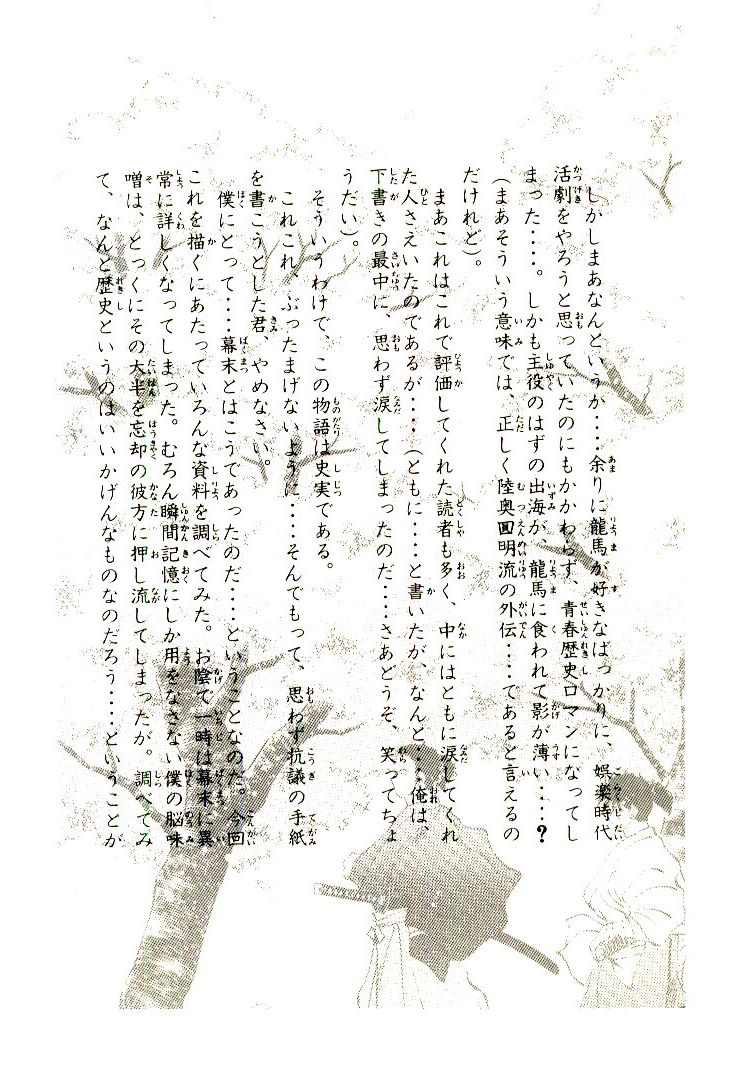 しかしまあなんというか・・・余りに龍馬が好きなばっかりに、娯楽時代
活劇をやろうと思っていたのにもかかわらず、青春歴史ロマンになってし
まった・・・・。しかも主役のはずの出海が、龍馬に食われて影が薄い・・・・?
(まあそういう意味では、正しく陸奥圓明流の外伝・・・・であると言えるの
だけれど)。
まあこれはこれで評価してくれた読者も多く、中にはともに涙してくれ
た人さえいたのであるが・・・・(ともに・・・・と書いたが、なんと・・・・俺は、
下書きの最中に、思わず涙してしまったのだ・・・・さあどうぞ、笑ってちょ
うだい)。
そういうわけで、この物語は史実である。
これこれ、ぶったまげないように・・・・そんでもって、思わず抗議の手紙
を書こうとした君、やめなさい。
僕にとって・・・・幕末とはこうであったのだ・・・・ということなのだ。今回
これを描くにあたっていろんな資料を調べてみた。お陰で一時は幕末に異
常に詳しくなってしまった。むろん瞬間記憶にしか用をなさない僕の脳味
噌は、とっくにその大半を忘却の彼方に押し流してしまったが。調べてみ
て、なんと歴史というのはいいかげんなものなのだろう・・・・ということが